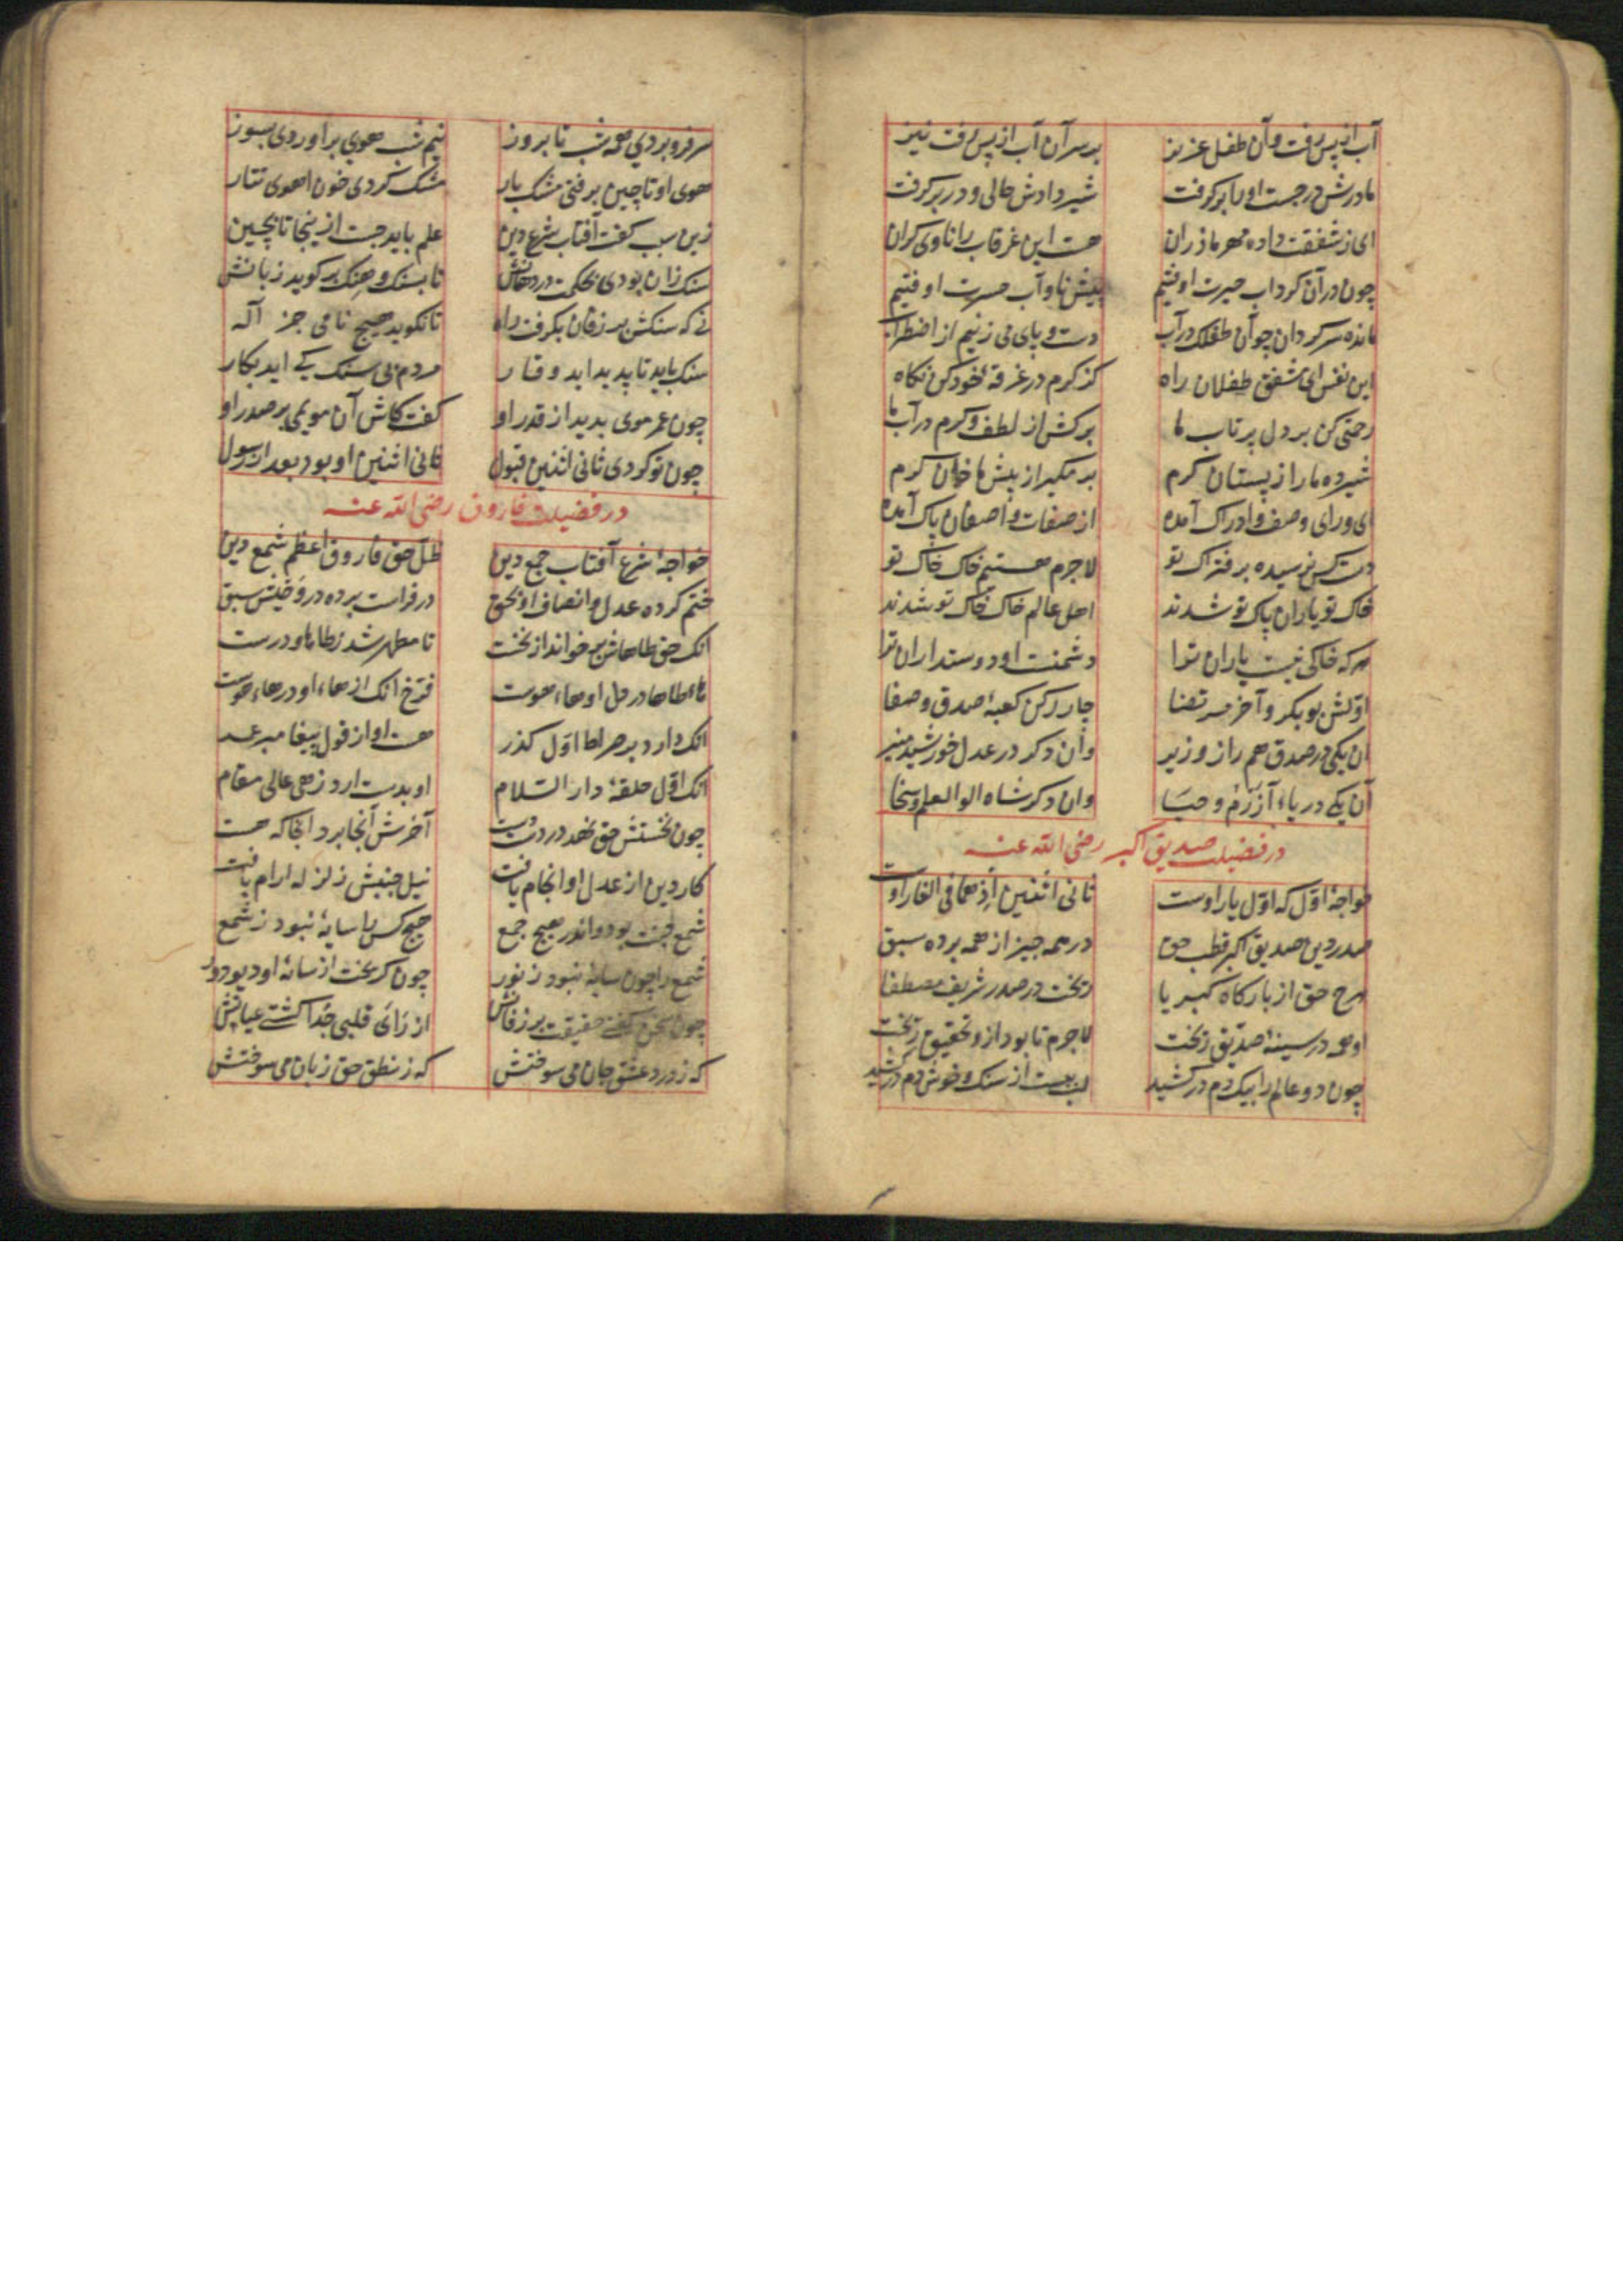 آب از پس رفت و آن طفل عزیز بر سر آن آب از پس رفت نیز
مادرش در جست او را بر گرفت شیر دادش حالی و در بر گرفت
ای ز شفقت داده مهر ماذران هست این غرقاب را ناوی گران
چون در آن گرداب حیرت اوفتیم پیش ناو آب حسرت اوفتیم
مانده سرگردان چو آن طفلک در آب دست و پای می زنیم از اضطراب
این نفس ای مشفق طفلان راه از کرم در غرقهٔ خود کن نگاه
رحمتی کن بر دل پر تاب ما برکش از لطف و کرم در آب ما
شیر ده ما را ز پستان کرم بر مگیر از پیش ما خوان کرم
ای ورای وصف و ادراک آمده از صفات واصفان پاک آمده
دست کس نرسیده بر فتراک تو لاجرم هستیم خاک خاک تو
خاک تو یاران پاک تو شدند اهل عالم خاک خاک تو شدند
هر که خاکی نیست یاران ترا دشمنست او دوستداران ترا
اوّلش بوبکر و آخر مرتضا چار رکن کعبهٔ صدق و صفا
آن یکی در صدق هم راز و وزیر وآن دگر در عدل خورشید منیر
آن یکی دریاء آزرم و حیا وان دگر شاه الوالعلم و سخا
در فضیلت صدیق اکبر رضی الله عنه
خواجهٔ اوّل که اوّل یار اوست ثانی اثنین اذ هما فی الغار اوست
صدر دین صدیق اکبر قطب حق در همه چیز از همه برده سبق
هرچ حق از بارگاه کبریا ریخت در صدر شریف مصطفا
او همه در سینهٔ صدّیق ریخت لاجرم تا بود ازو تحقیق ریخت
چون دو عالم را بیک دم درکشید لب ببست از سنک و خوش دم درکشید
سر فرو بردی همه شب تا بروز نیم شب هویی براوردی بسوز
هوی او تا چین برفتی مشک بار مشک کردی خون اهوی تتار
زین سبب گفت آفتاب شرع دین علم باید جست ازینجا تا بچین
سنک زان بودی بحکمت در دهانش تا بسنک و هنک بر گوید زبانش
نی که سنکش بر زفان بگرفت راه تا نگوید هیچ نامی جز اله
سنک باید تا پدید اید وقار مردم بی سنک کی اید بکار
چون عمر موی بدید از قدر او گفت کاش آن مویمی بر صدر او
چون تو کردی ثانی اثنین قبول ثانی اثنین او بود بعد از رسول
در فضیلت فاروق رضی الله عنه
خواجهٔ شرع آفتاب جمع دین ظلّ حق فاروق اعظم شمع دین
ختم کرده عدل و انصاف او بحق در فراست برده در وحیش سبق
انک حق طاها برو خواند از نخست تا مطهر شد ز طاها و درست
هاء طاها در دل او هاء هوست فرّخ انک از هاء او در هاء هوست
انک دارد بر صراط اوّل گذر هست او از قول پیغامبر عمر
انک اوّل حلقهٔ دار السّلام او بدست ارد زهی عالی مقام
چون نخستش حق نهد در دست دست آخرش آنجا برد انجا که هست
کار دین از عدل او انجام یافت نیل جنبش زلزله ارام یافت
شمع جنت بود و اندر هیچ جمع هیچ کس را سایهٔ نبود ز شمع
شمع را چون سایهٔ نبود ز نور چون گریخت از سایهٔ او دیو دور
چون سخن گفتی حقیقت بر زفانش از رای قلبی خدا گشتی عیانش
که ز درد عشق جان می سوختش که ز نطق حق زبان می سوختش